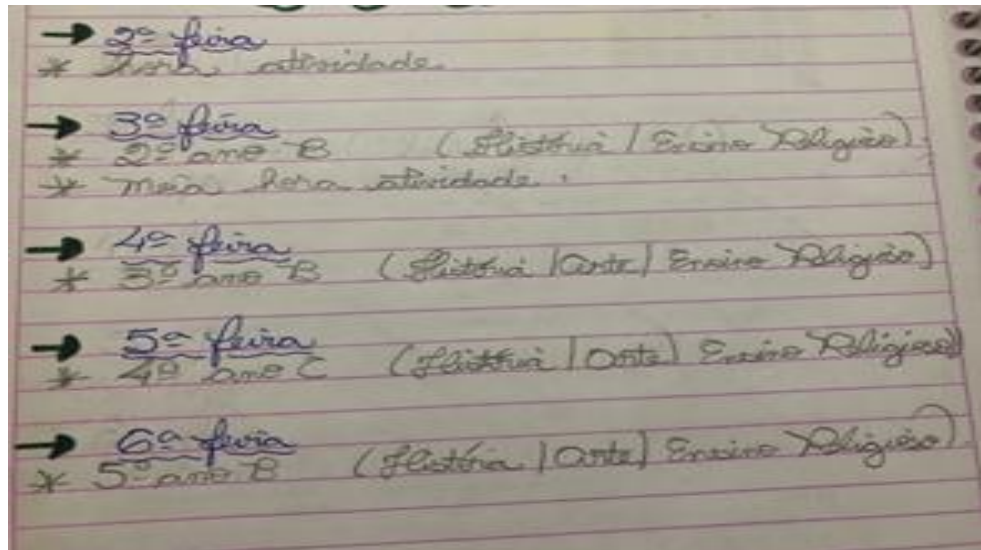 → 2ª feira
* hora atividade.
→ 3ª feira
* 2º ano B (História / Ensino Religioso).
* meia hora atividade.
→ 4ª feira
* 3º ano B (História / Arte / Ensino Religioso)
→ 5ª feira
* 4º ano C (História / Arte / Ensino Religioso)
→ 6ª feira
* 5º ano B (História / Arte / Ensino Religioso).